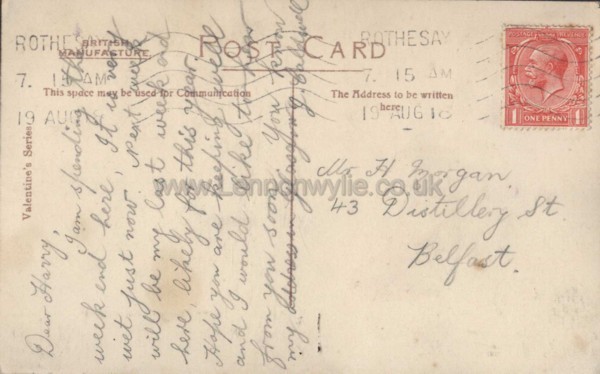 POST CARD
BRITISH
MANUFACTURE
ROTHESAY
7. 15 AM
19 AUG
ROTHESAY
7. 15 AM
19 AUG 18
This space may be used for Communication
The Address to be written
here
Valentine's Series
ONE PENNY
1 1
Dear Harry,
I am spending the
week end here, It is not
wet just now. Next week
will be my last week end
here, likely for this year.
Hope you are keeping well
and I would like to hear
from you soon. You know
my address
Mr H Morgan,
43 Distillery St
Belfast.
www.Lennonwylie.co.uk